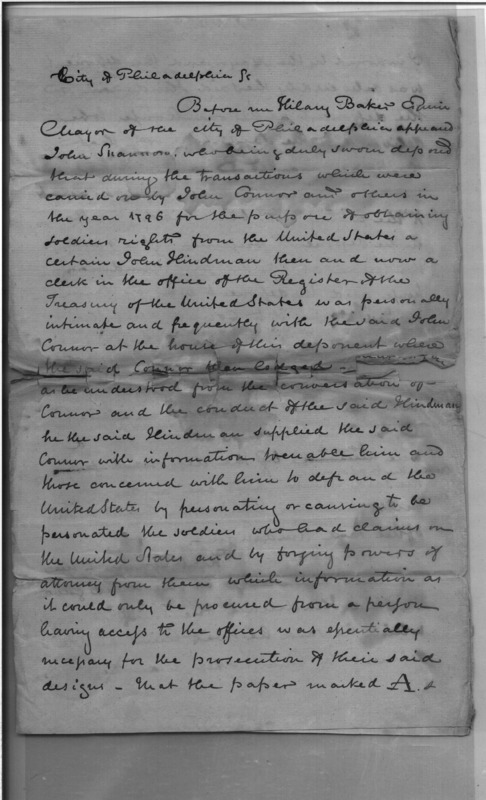 City of Philadelphia Ss
Before me Hilary Baker Esquire
Mayor of the city of Philadelphia appeared
John Shannon, who being duly sworn deposed
that during the transactions which were
carried on by John Connor and others in
the year 1796 for the purpose of obtaining
soldiers rights from the United States a
certain John Hindman then and now a
clerk in the office of the Register of the
Treasury of the United States was personally
intimate and frequently with the said John
Connor at the house of this deponent where
the said Connor then lodged –
as he understood from the conversation of
Connor and the conduct of the said Hindman
he the said Hindman supplied the said
Connor with information to enable him and
those concerned with him to defraud the
United States by personating or causing to be
personated the soldiers who had claims on
the United States and by forging powers of
attorney from them which information as
it could only be procured from a person
having access to the offices was essentially
necessary for the prosecution of their said
designs – that the paper marked A. &